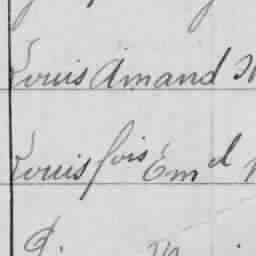 Louis Amand
Louis fois Em d